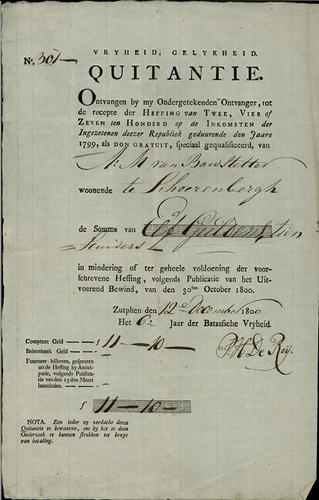 VRYHEID, GELYKHEID.
Nº. 301
QUITANTIE.
Ontvangen by my Ondergetekenden Ontvanger, tot
de recepte der Heffing van Twee, Vier of
Zeven ten Honderd op de Inkomsten der
Ingezetenen deezer Republiek geduurende den Jaare
1799, als don gratuit, speciaal gequalificeerd, van
A: M van
woonende te Scheerenbergh
de Somma van Elf Guldens, tien
Stuivers
in mindering of ter geheele voldoening der voor-
schrevene Heffing, volgends Publicatie van het Uit-
voerend Bewind, van den 30sten October 1800.
Zutphen den 12e December 1800
Het 6e Jaar der Bataafsche Vryheid.
Comptant Geld — ƒ 11 - 10 -
Beleenbank Geld — ƒ
Fourneer-billetten, gesproten
uit de Heffing by Antici-
patie, volgends Publica-
tie van den 15den Maart
laatstleden. — ƒ
P. H. De Roÿ.
ƒ 11 - 10 -
NOTA. Een ieder zy verdacht deeze
Quitantie te bewaaren, om by het te doen
Onderzoek te kunnen strekken tot bewys
van betaaling.